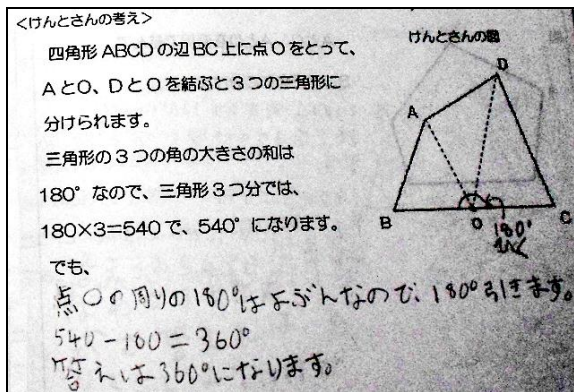 <けんとさんの考え>
四角形ABCDの辺BC上に点Oをとって、
AとO、DとOを結ぶと3つの三角形に
分けられます。
三角形の3つの角の大きさの和は
180°なので、三角形3つ分では、
180×3=540で、540°になります。
でも、
点Oの周りの180°はよぶんなので、180°引きます。
540-180=360°
答えは360°になります。
けんとさんの図
D
A
B
O
C
180°
ひく